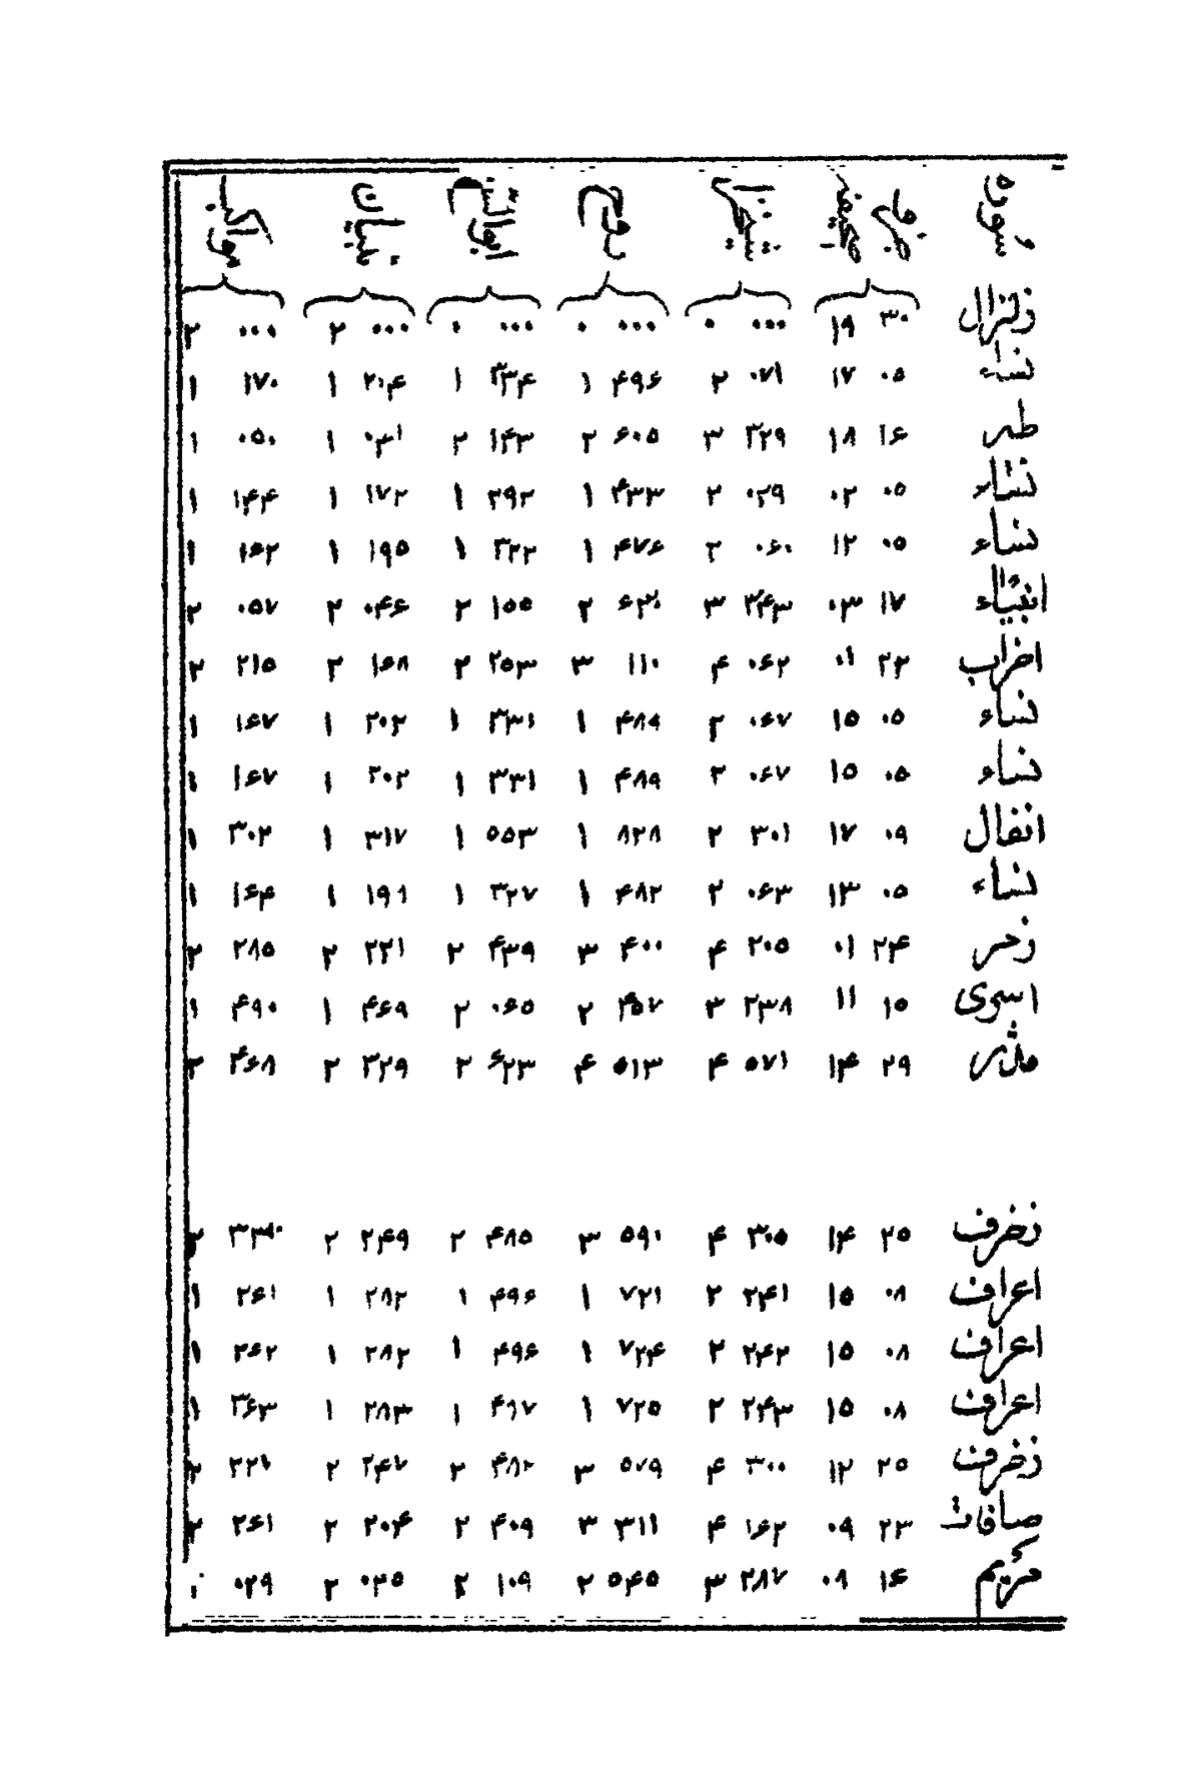 سوره
زلزال ۳۰ ۱۹ ۰۰۰ ۰ ۰۰۰ ۰ ۰۰۰ ۰ ۰۰۰ ۲ ۰۰۰ ۲
نساء ۰۵ ۱۷ ۰۷۱ ۲ ۴۹۶ ۱ ۳۳۴ ۱ ۲۰۴ ۱ ۱۷۰ ۱
طه ۱۶ ۱۸ ۳۲۹ ۳ ۶۰۵ ۲ ۱۴۳ ۲ ۰۳۱ ۱ ۰۵۰ ۱
نساء ۰۵ ۰۲ ۰۲۹ ۲ ۴۳۳ ۱ ۲۹۲ ۱ ۱۷۲ ۱ ۱۴۴ ۱
نساء ۰۵ ۱۲ ۰۶۰ ۲ ۴۷۶ ۱ ۳۲۲ ۱ ۱۹۵ ۱ ۱۶۲ ۱
انبیاء ۱۷ ۰۳ ۳۴۳ ۳ ۶۳۰ ۲ ۱۵۵ ۲ ۰۴۶ ۲ ۰۵۷ ۲
احزاب ۲۲ ۰۱ ۰۶۲ ۴ ۱۱۰ ۳ ۲۵۳ ۲ ۱۶۸ ۲ ۲۱۵ ۲
نساء ۰۵ ۱۵ ۰۶۷ ۲ ۴۸۹ ۱ ۳۳۱ ۱ ۲۰۲ ۱ ۱۶۷ ۱
نساء ۰۵ ۱۵ ۰۶۷ ۲ ۴۸۹ ۱ ۳۳۱ ۱ ۲۰۲ ۱ ۱۶۷ ۱
انفال ۰۹ ۱۷ ۳۰۱ ۲ ۸۲۸ ۱ ۵۵۳ ۱ ۳۱۷ ۱ ۳۰۲ ۱
نساء ۰۵ ۱۳ ۰۶۳ ۲ ۴۸۲ ۱ ۳۲۷ ۱ ۱۹۹ ۱ ۱۶۴ ۱
زمر ۲۴ ۰۱ ۲۰۵ ۴ ۴۰۰ ۳ ۴۳۹ ۲ ۲۲۱ ۲ ۲۸۵ ۲
اسری ۱۵ ۱۱ ۲۳۸ ۳ ۴۵۷ ۲ ۰۶۵ ۲ ۴۶۹ ۱ ۴۹۰ ۱
مدثر ۲۹ ۱۴ ۵۷۱ ۴ ۵۱۳ ۴ ۶۲۳ ۲ ۳۲۹ ۲ ۴۶۸ ۲
زخرف ۲۵ ۱۴ ۳۰۵ ۴ ۵۹۰ ۳ ۴۸۵ ۲ ۲۴۹ ۲ ۳۳۰ ۲
اعراف ۰۸ ۱۵ ۲۴۱ ۲ ۷۲۱ ۱ ۴۹۶ ۱ ۲۸۲ ۱ ۲۶۱ ۱
اعراف ۰۸ ۱۵ ۲۴۲ ۲ ۷۲۴ ۱ ۴۹۶ ۱ ۲۸۲ ۱ ۲۶۲ ۱
اعراف ۰۸ ۱۵ ۲۴۳ ۲ ۷۲۵ ۱ ۴۹۷ ۱ ۲۸۳ ۱ ۲۶۳ ۱
زخرف ۲۵ ۱۲ ۳۰۰ ۴ ۵۷۹ ۳ ۴۸۲ ۲ ۲۴۷ ۲ ۲
صافات ۲۳ ۰۹ ۱۶۲ ۴ ۳۱۱ ۳ ۴۰۹ ۲ ۲۰۴ ۲ ۲۶۱ ۲
مریم ۱۶ ۰۸ ۲۸۷ ۳ ۵۴۵ ۲ ۱۰۹ ۲ ۰۲۵ ۲ ۰۲۹